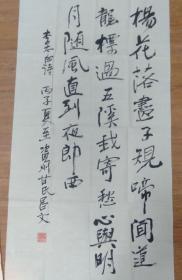 楊花落盡子規啼聞道
龍標過五溪我寄愁心與明
月随風直到夜郎西
李白詩 丙子夏至 貴州甘氏昌文